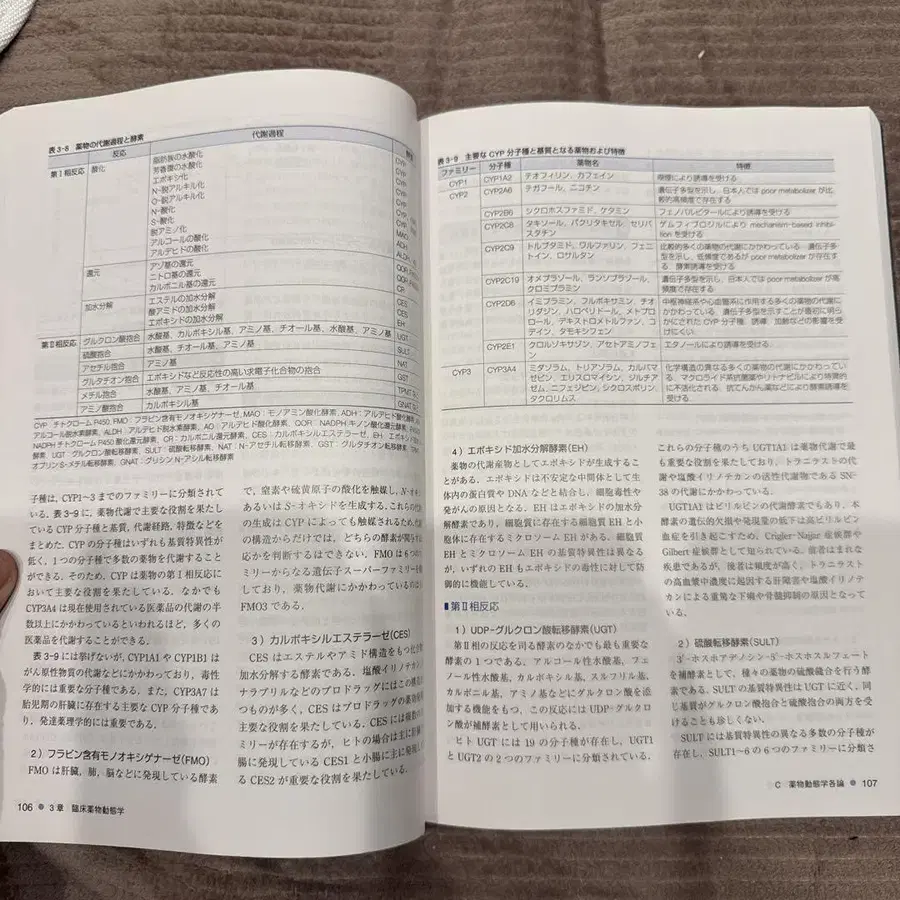 表3-8 薬物の代謝過程と酵素
反応 代謝過程
第Ⅰ相反応 酸化 脂肪族の水酸化 CYP
芳香環の水酸化 CYP
エポキシ化 CYP
N-脱アルキル化 CYP
O-脱アルキル化 CYP
N-酸化
S-酸化
脱アミノ化
アルコールの酸化
アルデヒドの酸化
還元 アゾ基の還元
ニトロ基の還元
カルボニル基の還元 CR
加水分解 エステルの加水分解 CES
酸アミドの加水分解 CES
エポキシドの加水分解 EH
第Ⅱ相反応 グルクロン酸抱合 水酸基、カルボキシル基、アミノ基、チオール基、水酸基、アミノ基 UGT
硫酸抱合 水酸基、チオール基、アミノ基 SULT
アセチル抱合 アミノ基 NAT
グルタチオン抱合 エポキシドなど反応性の高い求電子化合物の抱合 GST
メチル抱合 水酸基、アミノ基、チオール基
アミノ酸抱合 カルボキシル基 GNAT
CYP:チトクロームP450, FMO:フラビン含有モノオキシゲナーゼ, MAO:モノアミン酸化酵素, ADH:
アルコール脱水素酵素, ALDH:アルデヒド脱水素酵素, AO:アルデヒド酸化酵素, QOR:NADPHキノン酸化還元酵素
NADPHチトクロームP450酸化還元酵素, CR:カルボニル還元酵素, CES:カルボキシルエステラーゼ, EH:エポキシド
酵素, UGT:グルクロン酸転移酵素, SULT:硫酸転移酵素, NAT:N-アセチル転移酵素, GST:グルタチオン転移酵素
オプリンS-メチル転移酵素, GNAT:グリシンN-アシル転移酵素
子種は、CYP1~3までのファミリーに分類されて
いる。表3-9に、薬物代謝で主要な役割を果たし
ているCYP分子種と基質、代謝経路、特徴などを
まとめた。CYPの分子種はいずれも基質特異性が
低く、1つの分子種で多数の薬物を代謝すること
ができる。そのため、CYPは薬物の第Ⅰ相反応に
おいて主要な役割を果たしている。なかでも
CYP3A4は現在使用されている医薬品の代謝の半
数以上にかかわっているといわれるほど、多くの
医薬品を代謝することができる。
表3-9には挙げないが、CYP1A1やCYP1B1は
がん原性物質の代謝などにかかわっており、毒性
学的には重要な分子種である。また、CYP3A7は
胎児期の肝臓に存在する主要なCYP分子種であ
り、発達薬理学的には重要である。
2）フラビン含有モノオキシゲナーゼ(FMO)
FMOは肝臓、肺、脳などに発現している酵素
で、窒素や硫黄原子の酸化を触媒し、N-オキ
あるいはS-オキシドを生成する。これらの代
の生成はCYPによっても触媒されるため、代
の構造からだけでは、どちらの酵素が関与す
応かを判断することはできない。FMOは
ミリーからなる遺伝子スーパーファミリーを
しており、薬物代謝にかかわっているのは
FMO3である。
3）カルボキシルエステラーゼ(CES)
CESはエステルやアミド構造をもつ化合
加水分解する酵素である。塩酸イリノテカン
ナラプリルなどのプロドラッグにはこの構造
つものが多く、CESはプロドラッグの薬効発
主要な役割を果たしている。CESには複数の
ミリーが存在するが、ヒトの場合は主に肝
腸に発現しているCES1と小腸に主に発現し
るCES2が重要な役割を果たしている。
106 ● 3章 臨床薬物動態学
表3-9 主要なCYP分子種と基質となる薬物および特徴
ファミリー 分子種 薬物名 特徴
CYP1 CYP1A2 テオフィリン、カフェイン 喫煙により誘導を受ける
CYP2 CYP2A6 テガフール、ニコチン 遺伝子多型を示し、日本人ではpoor metabolizerが比
較的高頻度で存在する
CYP2B6 シクロホスファミド、ケタミン フェノバルビタールにより誘導を受ける
CYP2C8 タキソール、パクリタキセル、セリバ ゲムフィブロジルによりmechanism-based inhibi-
スタチン tionを受ける
CYP2C9 トルブタミド、ワルファリン、フェニ 比較的多くの薬物の代謝にかかわっている。遺伝子多
トイン、ロサルタン 型を示し、低頻度であるがpoor metabolizerが存在す
る。酵素誘導を受ける
CYP2C19 オメプラゾール、ランソプラゾール、 遺伝子多型を示し、日本人ではpoor metabolizerが高
クロミプラミン 頻度で存在する
CYP2D6 イミプラミン、フルボキサミン、チオ 中枢神経系や心血管系に作用する多くの薬物の代謝に
リダジン、ハロペリドール、メトプロ かかわっている。遺伝子多型を示すことが最初に明ら
ロール、デキストロメトルファン、コ かにされたCYP分子種。誘導、加齢などの影響を受
デイン、タモキシフェン けにくい
CYP2E1 クロルゾキサゾン、アセトアミノフェ エタノールにより誘導を受ける
ン
CYP3 CYP3A4 ミダゾラム、トリアゾラム、カルバマ 化学構造の異なる多くの薬物の代謝にかかわってい
ゼピン、エリスロマイシン、ジルチア る。マクロライド系抗菌薬やリトナビルにより特異的
ゼム、ニフェジピン、シクロスポリン、 に不活化される。抗てんかん薬などにより酵素誘導を
タクロリムス 受ける
4）エポキシド加水分解酵素(EH)
薬物の代謝産物としてエポキシドが生成するこ
とがある。エポキシドは不安定な中間体として生
体内の蛋白質やDNAなどと結合し、細胞毒性や
発がんの原因となる。EHはエポキシドの加水分
解酵素であり、細胞質に存在する細胞質EHと小
胞体に存在するミクロソームEHがある。細胞質
EHとミクロソームEHの基質特異性は異なる
が、いずれのEHもエポキシドの毒性に対して防
御的に機能している。
■第Ⅱ相反応
1）UDP-グルクロン酸転移酵素(UGT)
第Ⅱ相の反応を司る酵素のなかでも最も重要な
酵素の1つである。アルコール性水酸基、フェ
ノール性水酸基、カルボキシル基、スルフリル基、
カルボニル基、アミノ基などにグルクロン酸を添
加する機能をもつ、この反応にはUDP-グルクロ
ン酸が補酵素として用いられる。
ヒトUGTには19の分子種が存在し、UGT1
とUGT2の2つのファミリーに分類されている。
これらの分子種のうちUGT1A1は薬物代謝で最
も重要な役割を果たしており、トラニラストの代
謝や塩酸イリノテカンの活性代謝物であるSN-
38の代謝にかかわっている。
UGT1A1はビリルビンの代謝酵素でもあり、本
酵素の遺伝的欠損や発現量の低下は高ビリルビン
血症を引き起こすため、Crigler-Najjar症候群や
Gilbert症候群として知られている。前者はまれな
疾患であるが、後者は頻度が高く、トラニラスト
の高血漿中濃度に起因する肝障害や塩酸イリノテ
カンによる重篤な下痢や骨髄抑制の原因となって
いる。
2）硫酸転移酵素(SULT)
3'-ホスホアデノシン-5'-ホスホスルフェート
を補酵素として、種々の薬物の硫酸縫合を行う酵
素である。SULTの基質特異性はUGTに近く、同
じ基質がグルクロン酸抱合と硫酸抱合の両方を受
けることも珍しくない。
SULTには基質特異性の異なる多数の分子種が
存在し、SULT1~6の6つのファミリーに分類さ
C 薬物動態学各論 ● 107